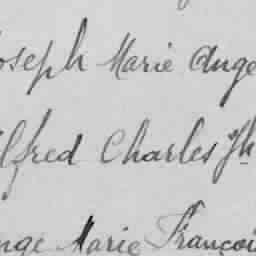 oseph Marie Ange
lfred Charles Jh
nge Marie Françoi